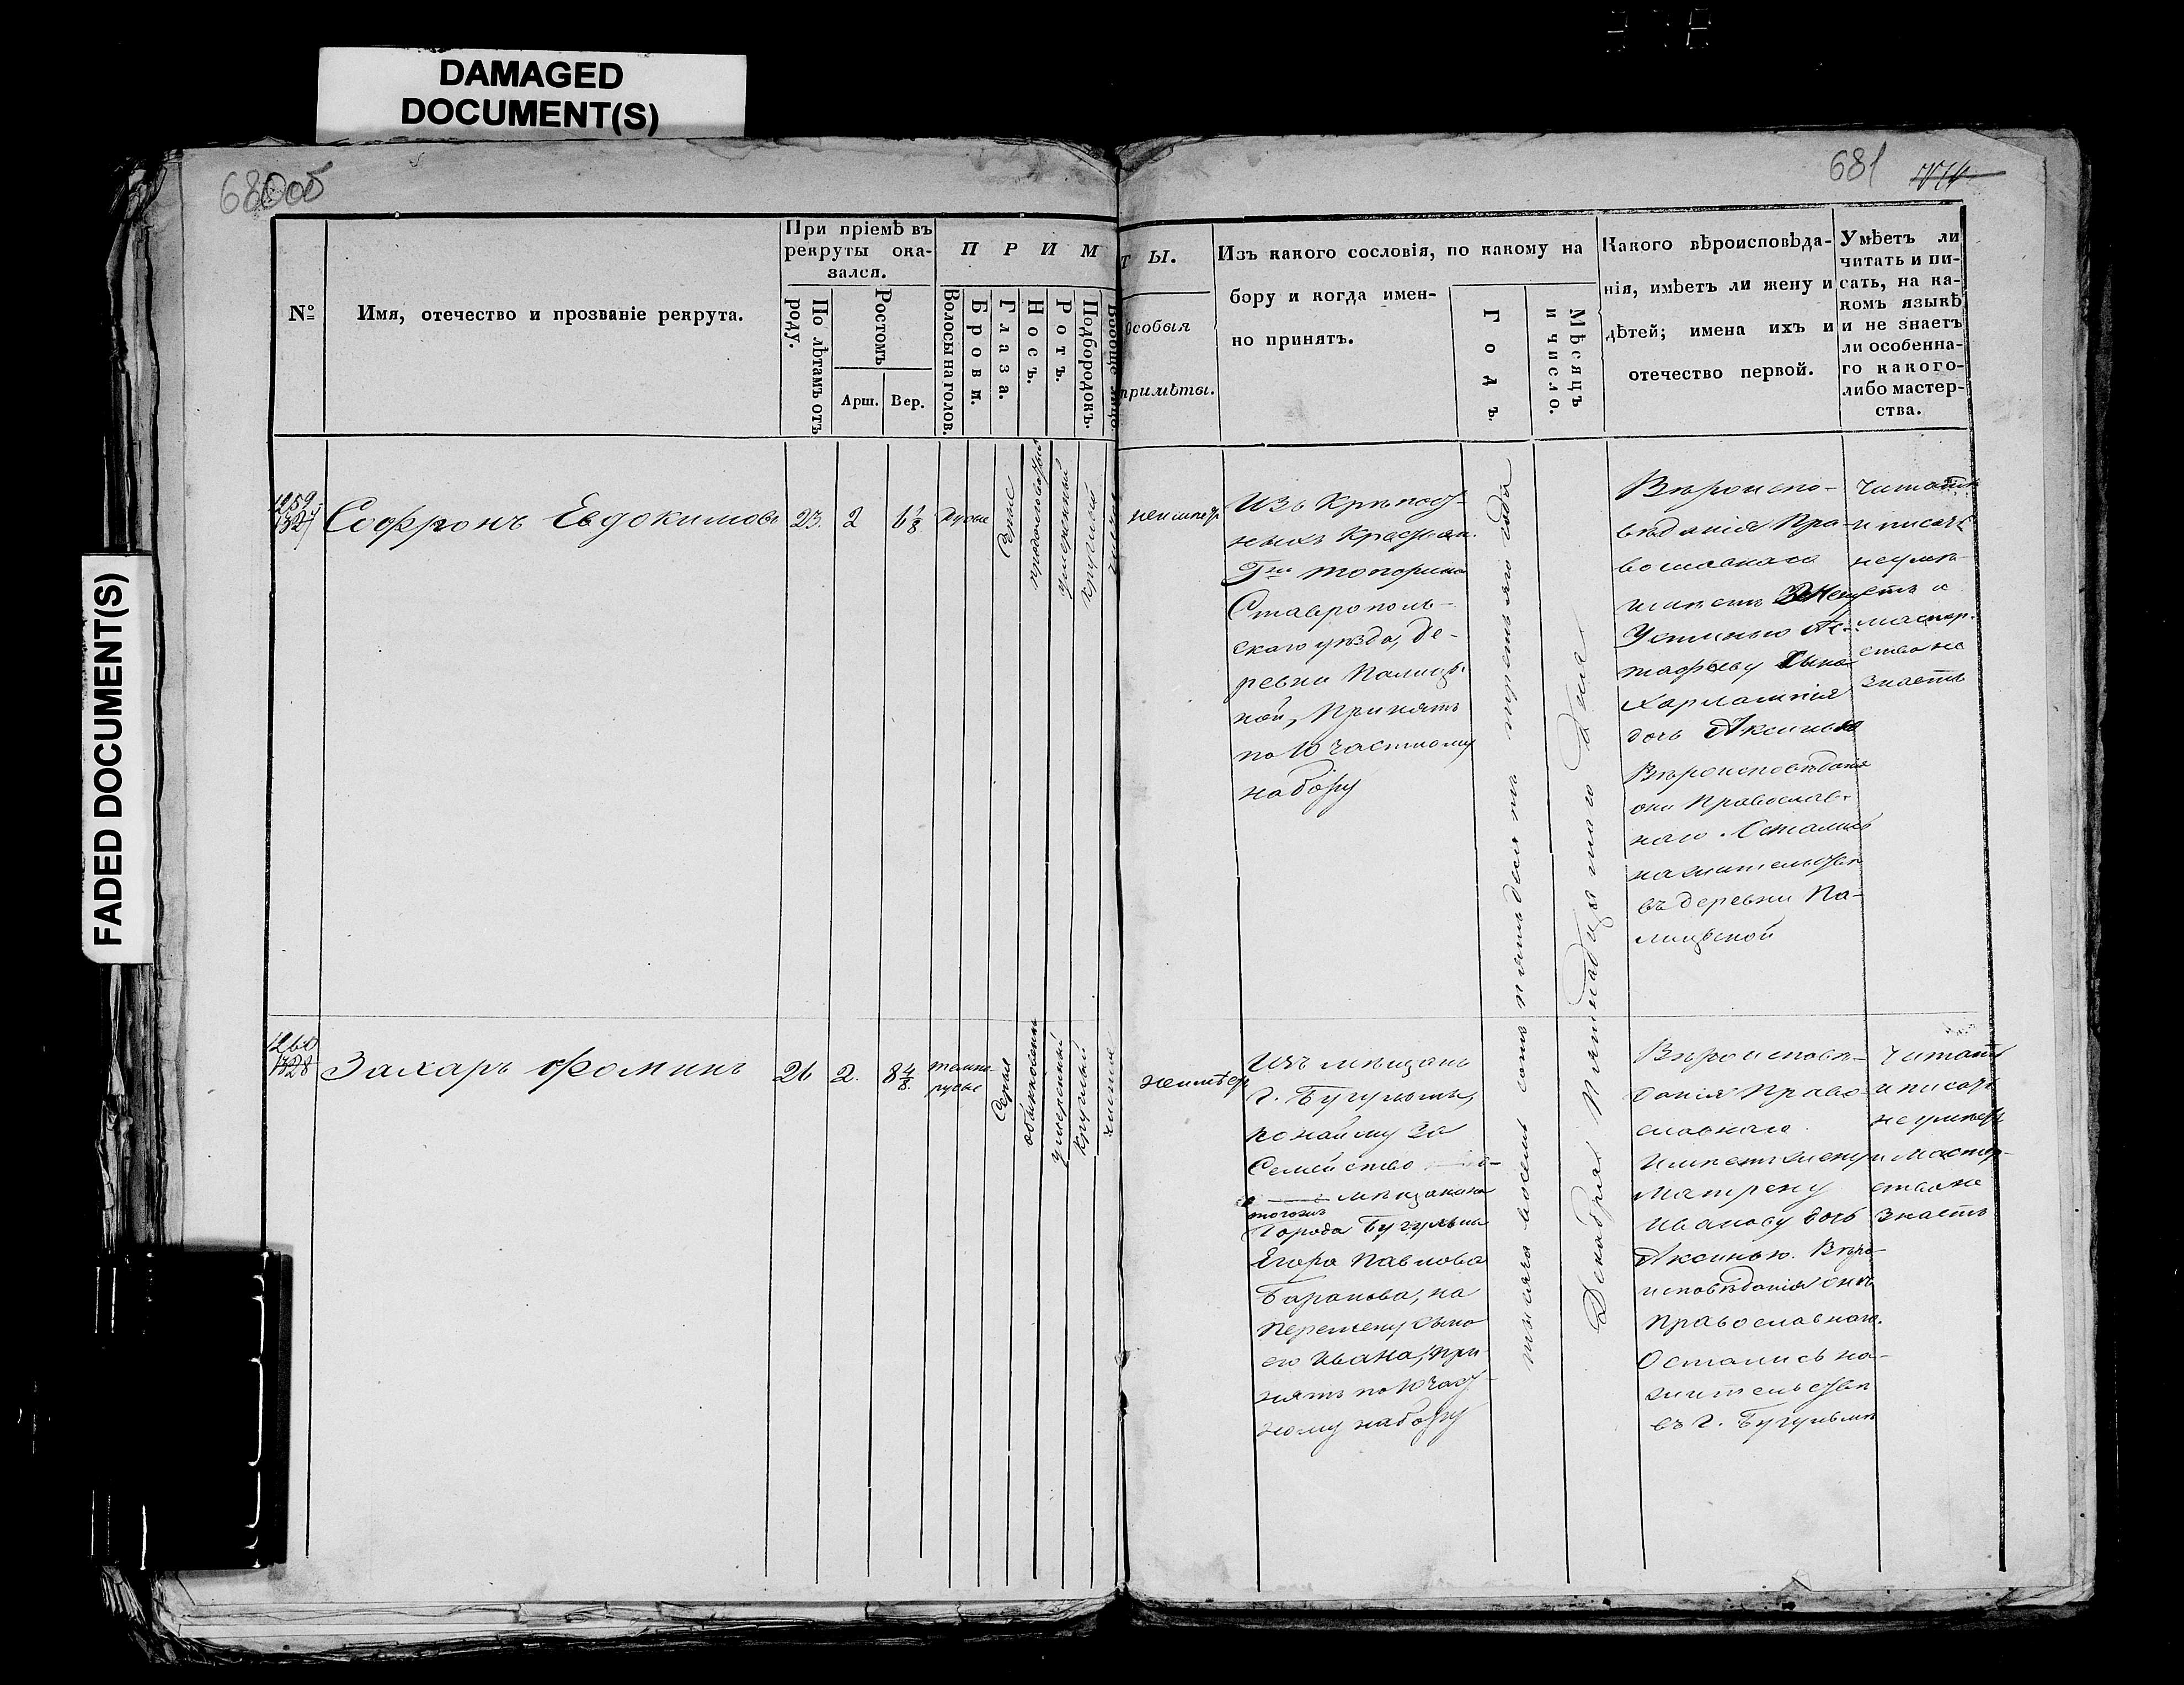 DAMAGED
DOCUMENT(S)
FADED DOCUMENT(S)
680об
681
№
Имя, отечество и прозваніе рекрута.
При пріемѣ въ
рекруты ока-
зался.
По лѣтамъ отъ
роду.
Ростомъ
Арш.
Вер.
П Р И М
Волосы на голов.
Брови.
Глаза.
Носъ.
Ротъ.
Подбородокъ.
Вообще лицо.
Т Ы.
Особыя
примѣты.
Изъ какого сословія, по какому на
бору и когда имен-
но принятъ.
Годъ.
Мѣсяцъ
и число.
Какого вѣроисповѣда-
нія, имѣетъ ли жену и
дѣтей; имена ихъ и
отечество первой.
Умѣетъ ли
читать и пи-
сать, на ка-
комъ языкѣ
и не знаетъ
ли особенна-
го какого-
либо мастер-
ства.
1259
1327
Софронъ Евдокимовъ
23.
2
6 1/8
Русые
Серые
продолговатый
умеренный
круглый
чистое
неимеет
Изъ Крѣпост-
ныхъ Крестьян.
Гна Топорнина
Ставрополь-
скаго уѣзда, де-
ревни
ной, Принятъ
по 10 частному
набору
Вѣроиспо-
вѣданія Пра-
вославнаго
имѣетъ Жену
Устинью
Сына
Харлампія
дочь Аксинью
Вѣроисповѣданія
они Православ-
наго. Остались
на жительствѣ
въ деревни Па-
Читать
и писать
неумѣ-
етъ и
мастер-
ства не
знаетъ
тысяча восемь сотъ пятьдесятъ третьяго года
Декабря Пятнадцатаго дня
1260
1328
Захаръ Фоминъ
26
2.
8 4/8
темно-
русые
Серые
обыкновенный
умеренный
Круглый
чистое
неимѣет
Изъ мѣщанъ
г. Бугульмы,
по найму за
Семейство
тогожъ
мѣщанина
Города Бугульмы
Егора Павлова
Баранова, на
перемену сына
его Ивана, при-
нятъ по 10 част-
ному набору
Вѣроисповѣ-
данія Право-
славнаго
Имѣетъ жену
Матрену
Иванову дочь
Аксинью. Вѣро-
исповѣданія онѣ
Православнаго.
Остались на-
жительствѣ
въ г. Бугульмѣ
Читать
и писать
не умѣетъ
и мастер-
ства не
знаетъ